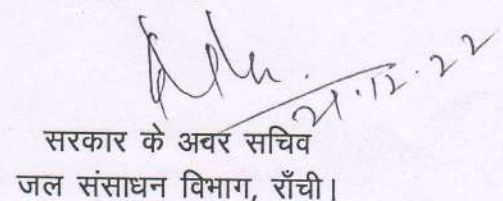 21.12.22
सरकार के अवर सचिव
जल संसाधन विभाग, राँची।